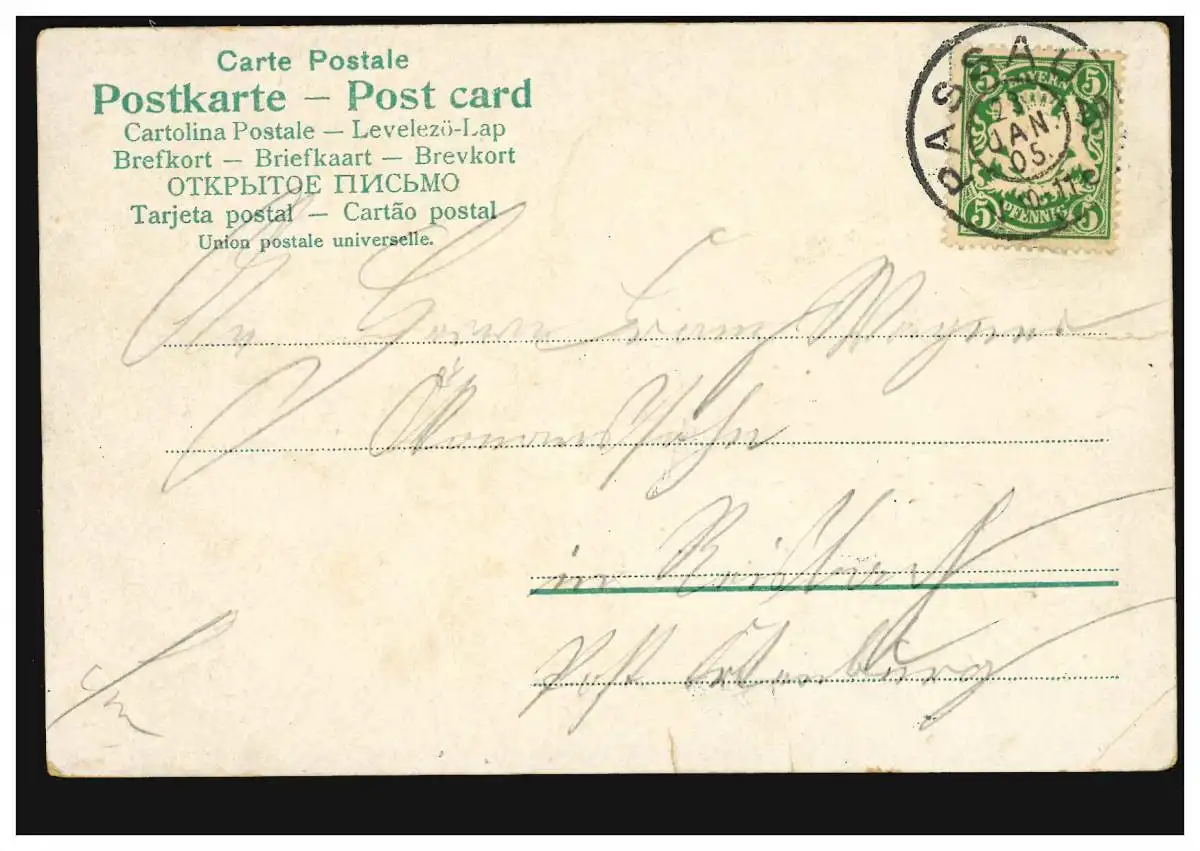 Carte Postale
Postkarte – Post card
Cartolina Postale — Levelezö-Lap
Brefkort — Briefkaart — Brevkort
ОТКРЫТОЕ ПИСЬМО
Tarjeta postal — Cartão postal
Union postale universelle.
PASSAU
JAN.
05.
5 BAYERN 5
5 PFENNIG 5
An Herrn Franz Wagner
Ökonomssohn
in
Post Ortenburg